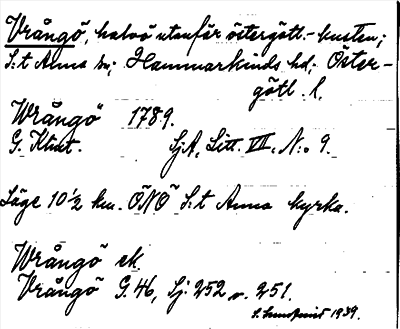 Vrångö, halvö utanför östergötl.-kusten;
S:t Anna sn; Hammarkinds hd; Öster-
götl. l.
Wrångö 1789.
G. Klint. SjA, Litt. VII, N:o 9.
Läge 10 1/2 km. ÖNÖ S:t Anna kyrka.
Wrångö ek
Vrångö G. 46, Sj: 252 o. 251.
1939.